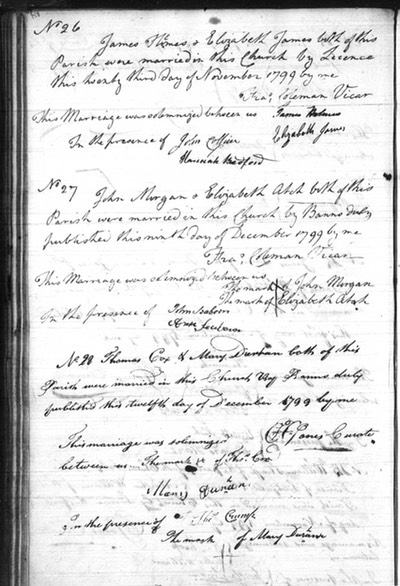 No 26
James Homes & Elizabeth James both of this
Parish were married in this Church by Licence
this twenty third day of November 1799 by me
Fra.s Coleman Vicar
This Marriage was solemnized between us James Holmes
Elizabeth James
In the presence of John Collier
Hannah Redford
No 27 John Morgan & Elizabeth Abch both of this
Parish were married in this Church by Banns duly
published this ninth day of December 1799 by me
Fra.s Coleman Vicar
This Marriage was solemnized between us
The mark X of John Morgan
The mark of Elizabeth
In the presence of John
Ann
No 28 Thomas Cox & Mary Durban both of this
Parish were married in this Church by Banns duly
published this twelfth day of December 1799 by me
This marriage was solemnized Jones Curate
between us The mark of Thos Cox
Mary
In the presence of Thos
The mark of Mary